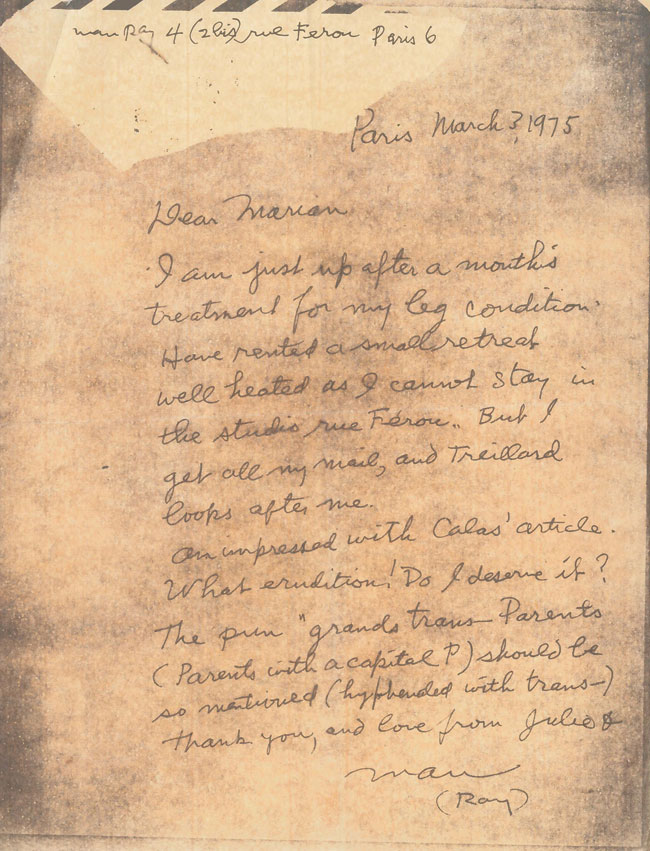 man Ray 4 (2 bis) rue Ferou Paris 6
Paris March 3, 1975
Dear Marian
I am just up after a month's
treatment for my leg condition.
Have rented a small retreat
well heated as I cannot stay in
the studio rue Férou.. But I
get all my mail, and Treillard
looks after me.
am impressed with Calas' article.
What erudition! Do I deserve it?
The pun "grands trans-Parents
(Parents with a capital P) should be
so mentioned (hyphended with trans-)
thank you, and love from Julie &
man
(Ray)